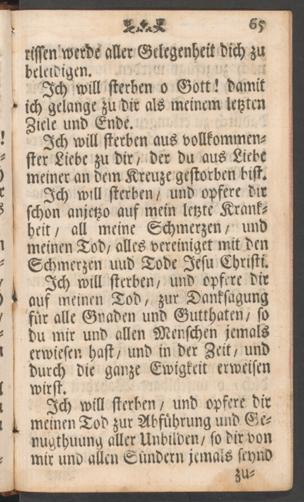 65
rissen werde aller Gelegenheit dich zu
beleidigen.
Jch will sterben o Gott! damit
ich gelange zu dir als meinem letzten
Ziele und Ende.
Jch will sterben aus vollkommen-
ster Liebe zu dir / der du aus Liebe
meiner an dem Kreuze gestorben bist.
Jch will sterben / und opfere dir
schon anjetzo auf mein letzte Krank-
heit / all meine Schmerzen / und
meinen Tod / alles vereiniget mit den
Schmerzen uud Tode Jesu Christi.
Jch will sterben / und opfere dir
auf meinen Tod / zur Danksagung
für alle Gnaden und Gutthaten / so
du mir und allen Menschen jemals
erwiesen hast / und in der Zeit / und
durch die ganze Ewigkeit erweisen
wirst.
Jch will sterben / und opfere dir
meinen Tod zur Abführung und Ge-
nugthuung aller Unbilden / so dir von
mir und allen Sündern jemals seynd
zu-